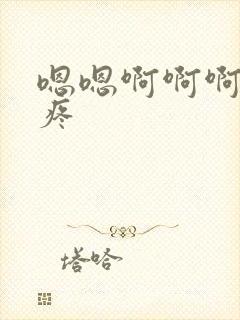 嗯嗯啊啊啊
疼
塔哈